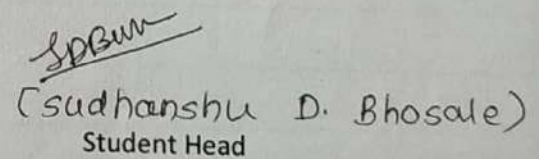 (Sudhanshu D. Bhosale)
Student Head